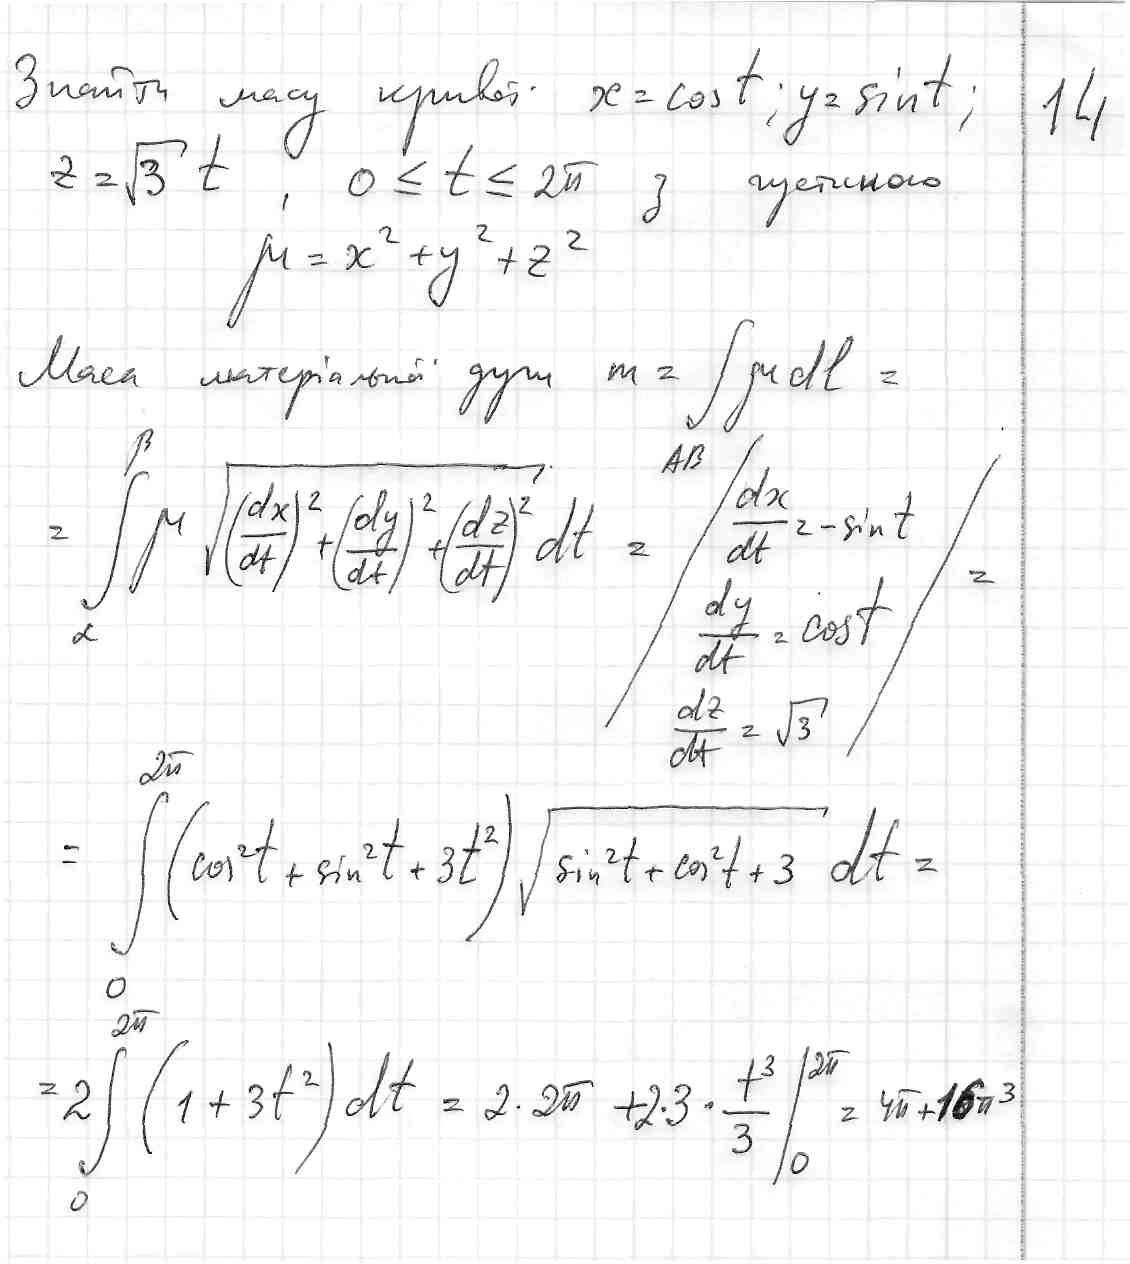 Знайти масу кривої x = cos t; y = sin t; 14
z = √3 t , 0 ≤ t ≤ 2π з густиною
μ = x² + y² + z²
Маса матеріальної дуги m = ∫_{AB} μ dl =
= ∫_α^β μ √((dx/dt)² + (dy/dt)² + (dz/dt)²) dt = / dx/dt = -sin t / =
dy/dt = cos t
dz/dt = √3
= ∫_0^{2π} (cos²t + sin²t + 3t²) √(sin²t + cos²t + 3) dt =
= 2 ∫_0^{2π} (1 + 3t²) dt = 2·2π + 2·3· t³/3 |_0^{2π} = 4π + 16π³